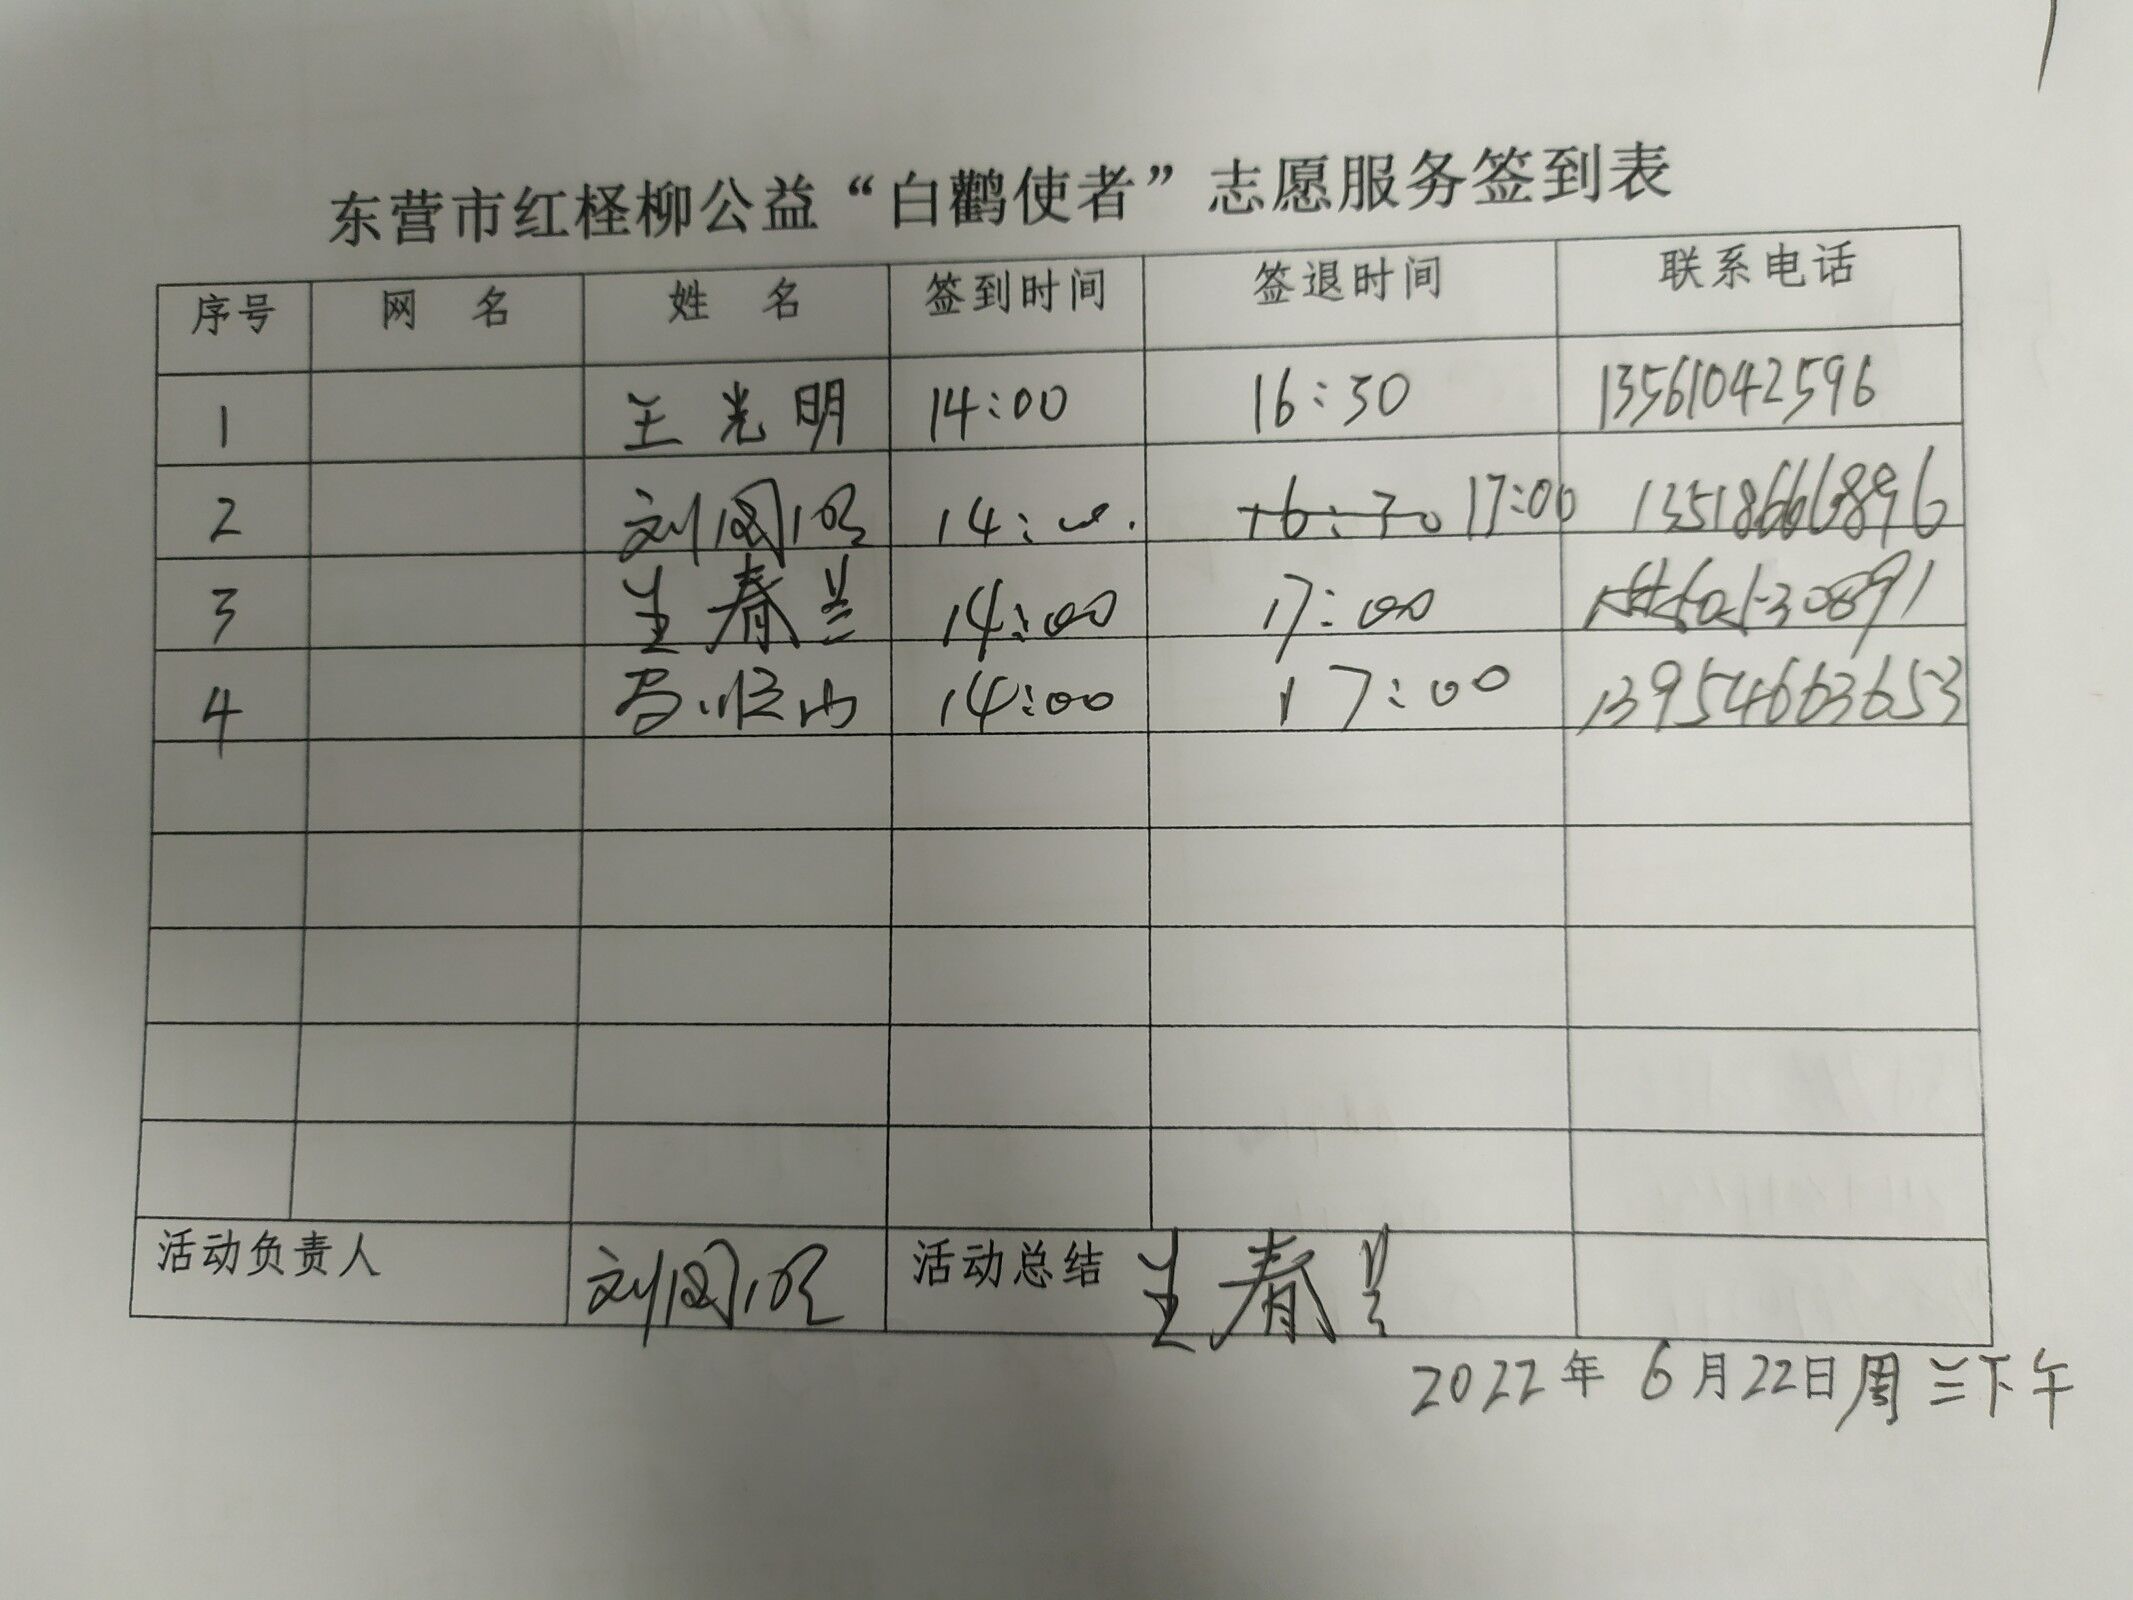 东营市红柽柳公益“白鹳使者”志愿服务签到表
序号 网 名 姓 名 签到时间 签退时间 联系电话
1 王光明 14:00 16:30 13561042596
2 刘国明 14:00 16:30 17:00 13518666896
3 王春兰 14:00 17:00
4 14:00 17:00 13954663653
活动负责人 刘国明 活动总结 王春兰
2022年 6月22日周三下午